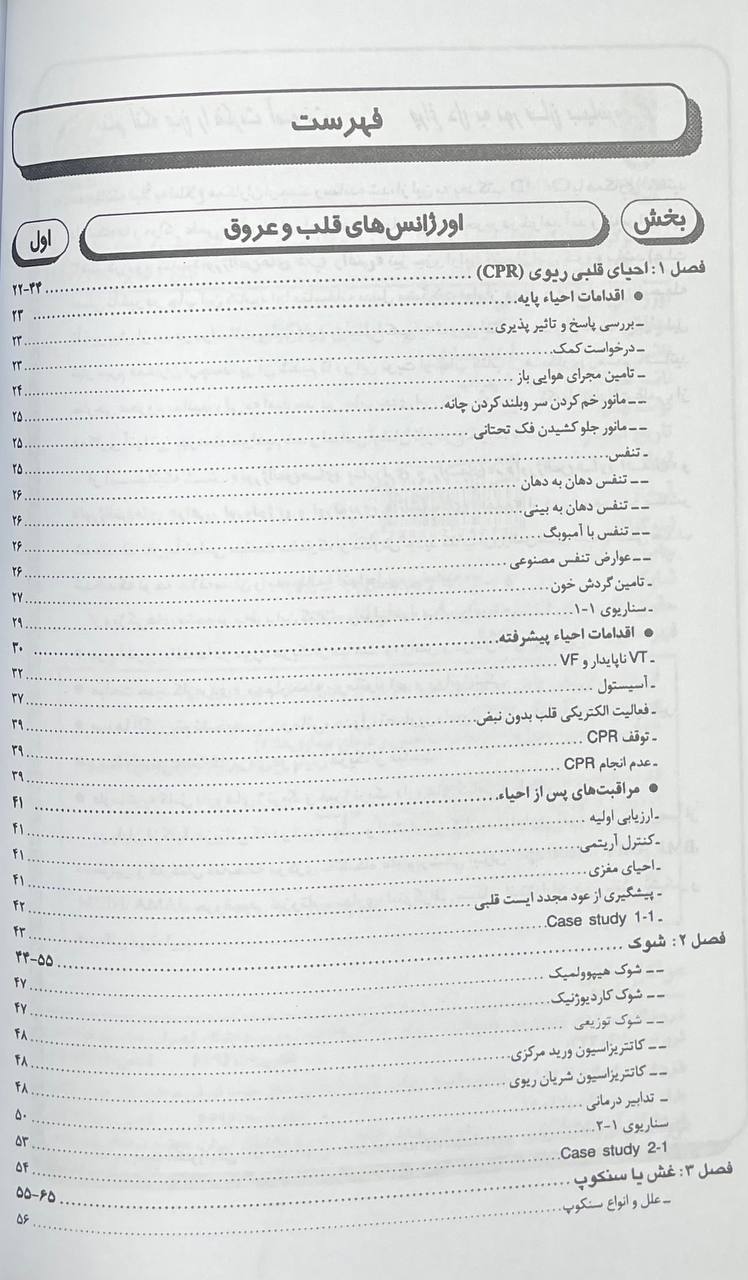 فهرست
بخش اورژانس‌های قلب و عروق اول
فصل ۱: احیای قلبی ریوی (CPR) ۲۲-۴۴
● اقدامات احیاء پایه ۲۳
ـ بررسی پاسخ و تاثیر پذیری ۲۳
ـ درخواست کمک ۲۳
ـ تامین مجرای هوایی باز ۲۴
ـ ـ مانور خم کردن سر و بلند کردن چانه ۲۵
ـ ـ مانور جلو کشیدن فک تحتانی ۲۵
ـ تنفس ۲۵
ـ ـ تنفس دهان به دهان ۲۶
ـ ـ تنفس دهان به بینی ۲۶
ـ ـ تنفس با آمبوبگ ۲۶
ـ ـ عوارض تنفس مصنوعی ۲۶
ـ تامین گردش خون ۲۷
ـ سناریوی ۱-۱ ۲۹
● اقدامات احیاء پیشرفته ۳۰
ـ VT ناپایدار و VF ۳۲
ـ آسیستول ۳۷
ـ فعالیت الکتریکی قلب بدون نبض ۳۹
ـ توقف CPR ۳۹
ـ عدم انجام CPR ۳۹
● مراقبت‌های پس از احیاء ۴۱
ـ ارزیابی اولیه ۴۱
ـ کنترل آریتمی ۴۱
ـ احیای مغزی ۴۱
ـ پیشگیری از عود مجدد ایست قلبی ۴۲
ـ Case study 1-1 ۴۳
فصل ۲: شوک ۴۴-۵۵
ـ ـ شوک هیپوولمیک ۴۷
ـ ـ شوک کاردیوژنیک ۴۷
ـ ـ شوک توزیعی ۴۸
ـ ـ کاتتریزاسیون ورید مرکزی ۴۸
ـ ـ کاتتریزاسیون شریان ریوی ۴۸
ـ تدابیر درمانی ۵۰
سناریوی ۱-۲ ۵۳
Case study 2-1 ۵۴
فصل ۳: غش یا سنکوپ ۵۵-۶۵
ـ علل و انواع سنکوپ ۵۶